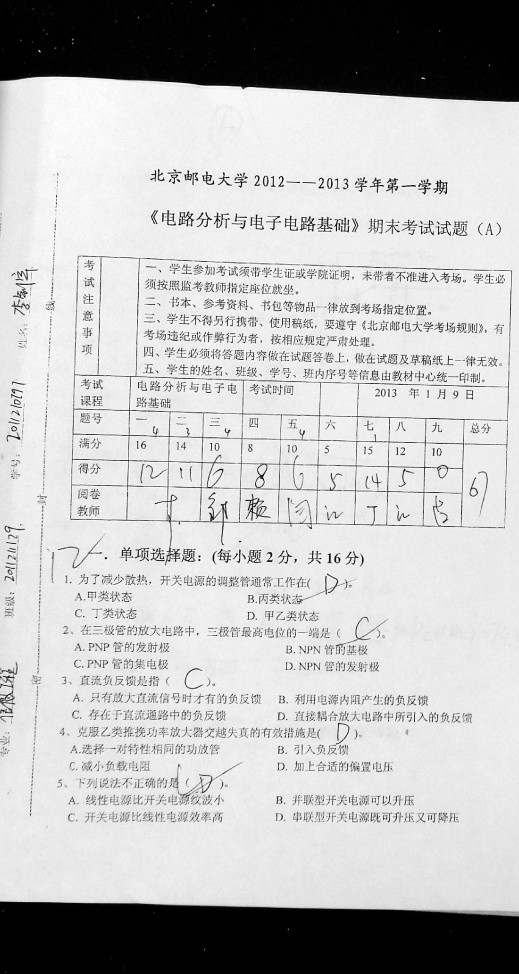 北京邮电大学 2012——2013 学年第一学期
《电路分析与电子电路基础》期末考试试题（A）
考试注意事项
一、学生参加考试须带学生证或学院证明，未带者不准进入考场。学生必
须按照监考教师指定座位就坐。
二、书本、参考资料、书包等物品一律放到考场指定位置。
三、学生不得另行携带、使用稿纸，要遵守《北京邮电大学考场规则》，有
考场违纪或作弊行为者，按相应规定严肃处理。
四、学生必须将答题内容做在试题答卷上，做在试题及草稿纸上一律无效。
五、学生的姓名、班级、学号、班内序号等信息由教材中心统一印制。
考试课程 电路分析与电子电路基础 考试时间 2013 年 1 月 9 日
题号 一 二 三 四 五 六 七 八 九 总分
4 3 4 4 1
满分 16 14 10 8 10 5 15 12 10
得分 12 11 6 8 6 5 14 5 0 67
阅卷教师
12
一．单项选择题：(每小题 2 分，共 16 分)
1. 为了减少散热，开关电源的调整管通常工作在( D )。
A.甲类状态 B.丙类状态
C. 丁类状态 D. 甲乙类状态
2、在三极管的放大电路中，三极管最高电位的一端是（ C ）。
A. PNP 管的发射极 B. NPN 管的基极
C.PNP 管的集电极 D. NPN 管的发射极
3、直流负反馈是指（ C ）。
A. 只有放大直流信号时才有的负反馈 B. 利用电源内阻产生的负反馈
C. 存在于直流通路中的负反馈 D. 直接耦合放大电路中所引入的负反馈
4、克服乙类推挽功率放大器交越失真的有效措施是( D )。
A.选择一对特性相同的功放管 B. 引入负反馈
C. 减小负载电阻 D. 加上合适的偏置电压
5、下列说法不正确的是（ D ）。
A. 线性电源比开关电源纹波小 B. 并联型开关电源可以升压
C. 开关电源比线性电源效率高 D. 串联型开关电源既可升压又可降压
姓名：
学号：
班级：
专业：
线
封
密